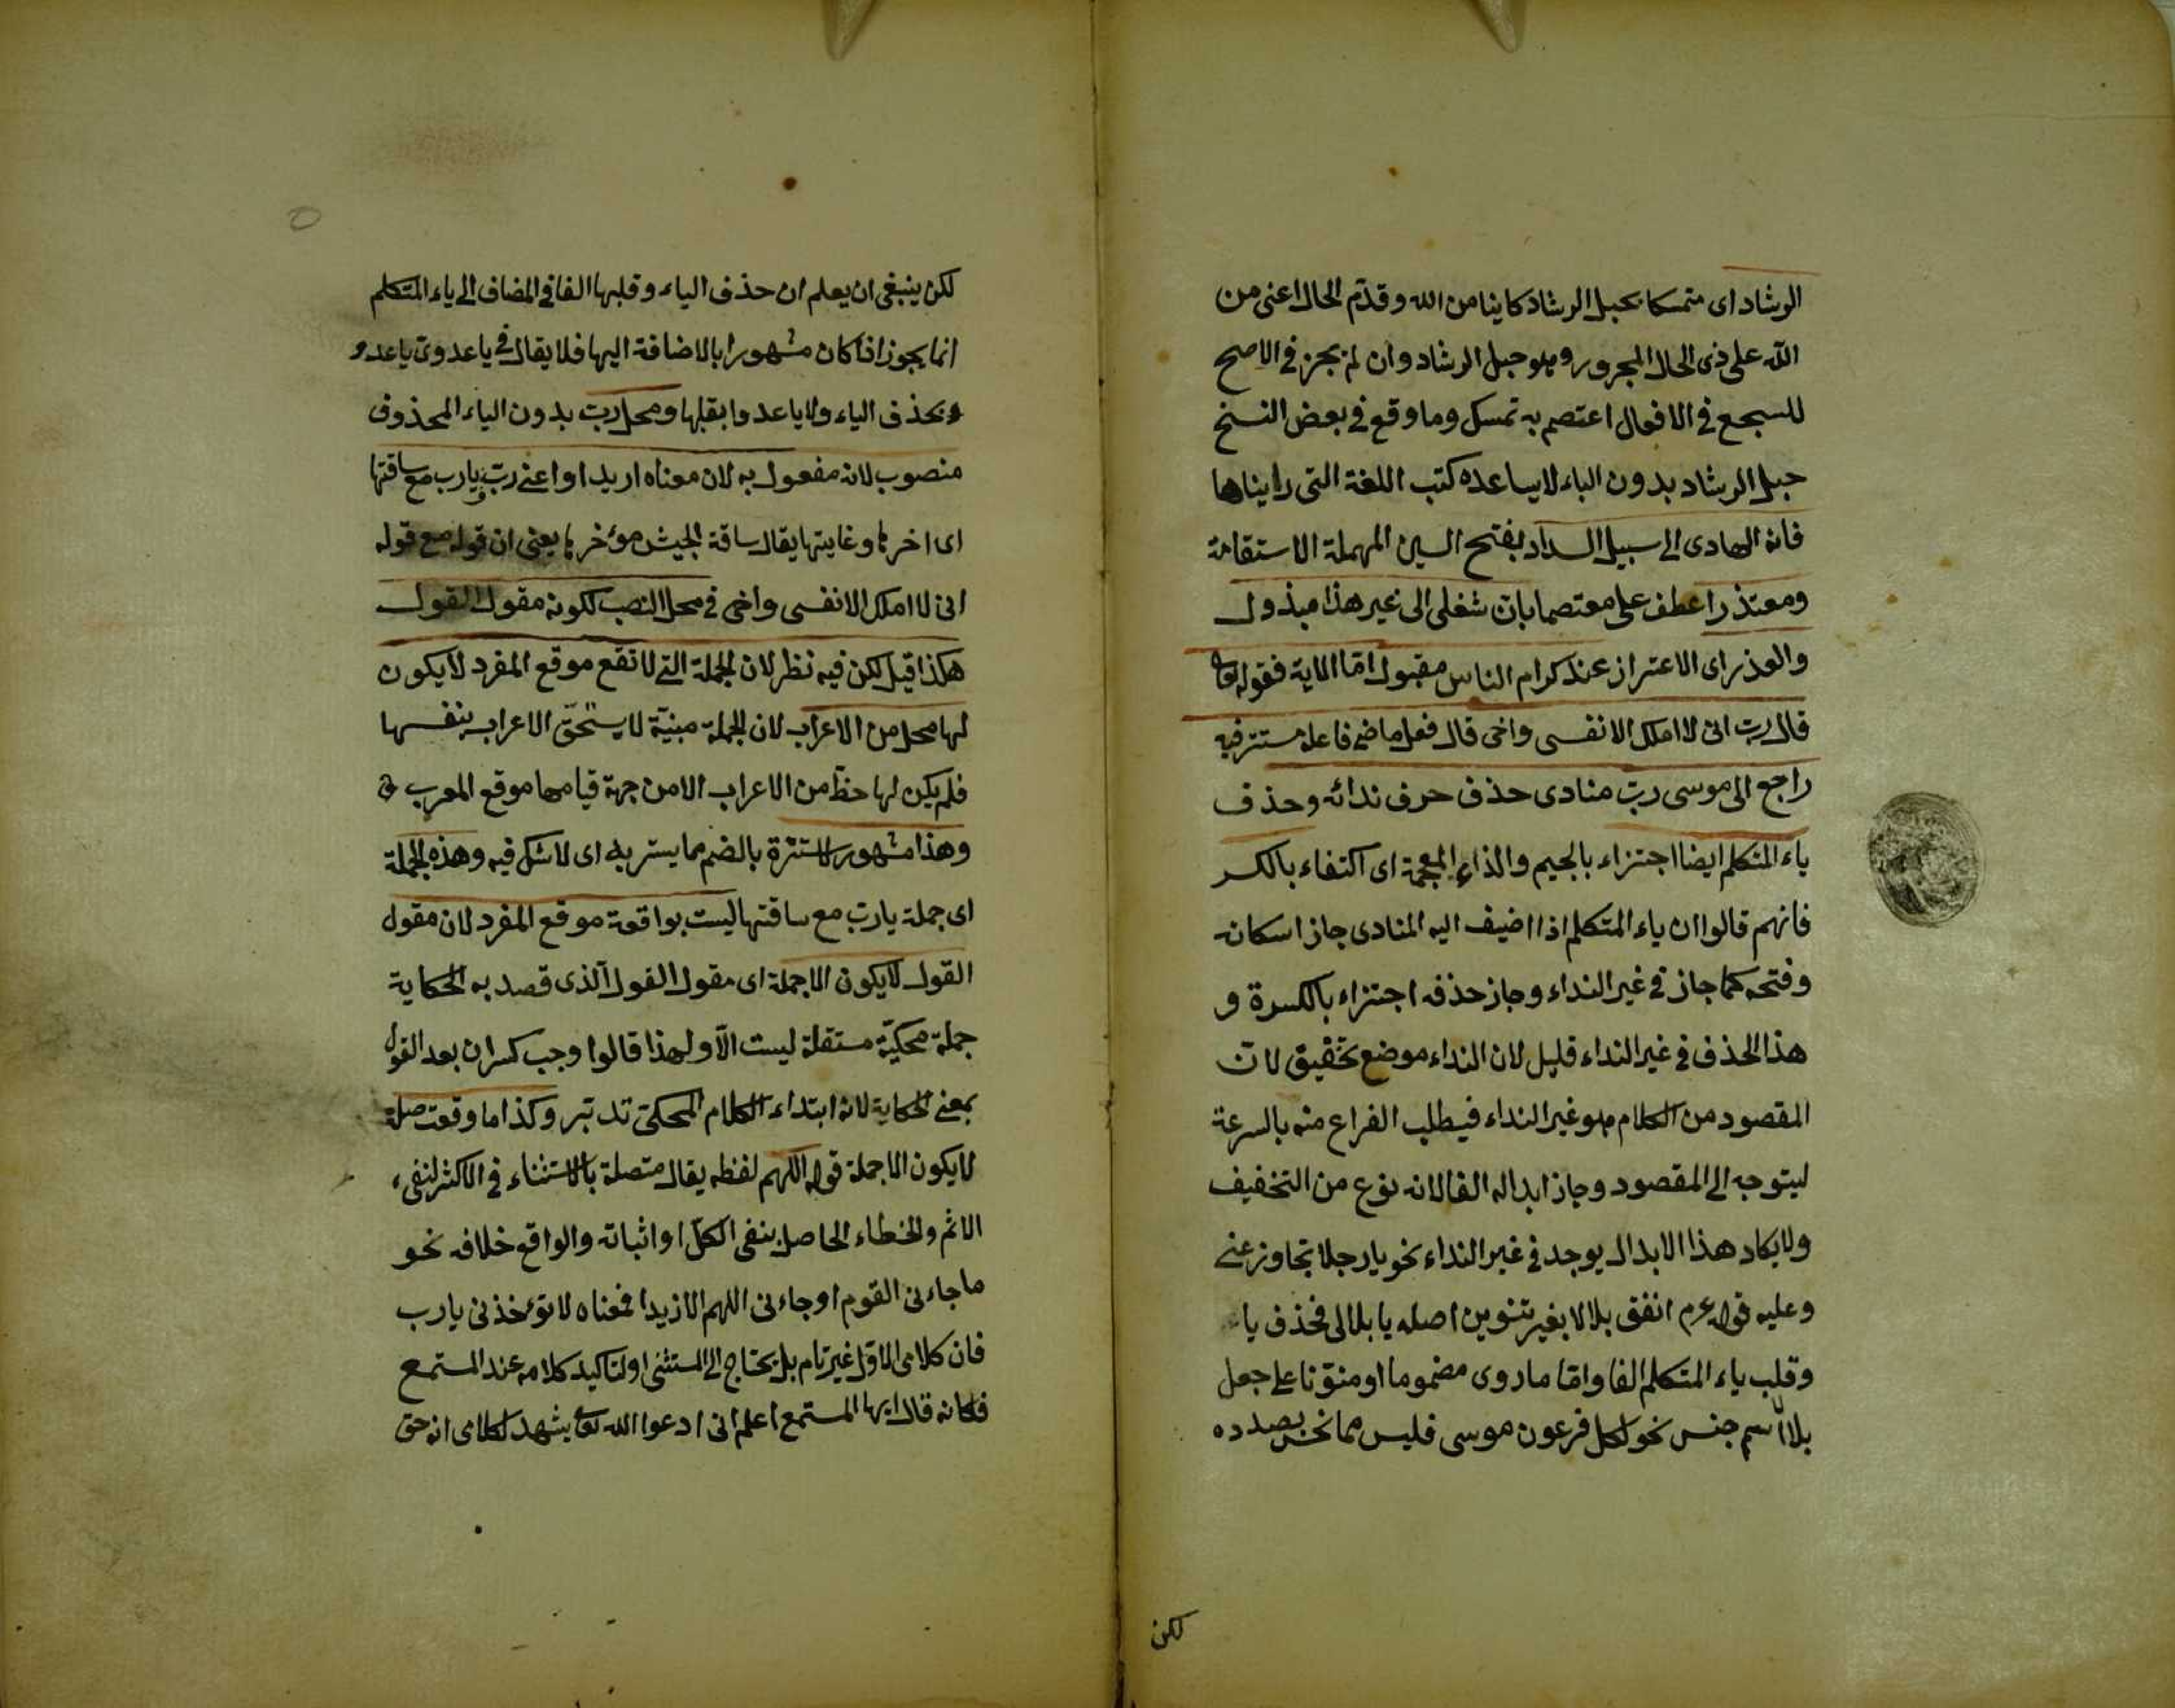 الرشاد اى متمسكا بحبل الرشاد كاينا من الله وقدّم الحال اعنى من
الله على ذى الحال المجرور وهو حبل الرشاد وان لم يجز فى الاصح
للسجع فى الافعال اعتصم به تمسك وما وقع فى بعض النسخ
حبل الرشاد بدون الباء لا يساعده كتب اللغة التى رايناها
فانه الهادى الى سبيل السداد بفتح السين المهملة الاستقامة
ومعتذرا عطف على معتصما بان شغلى الى غير هذا مبذول
والعذر اى الاعتراز عند كرام الناس مقبول امّا الاية فقوله تعا
قال رب انى لا املك الا نفسى واخى قال فعل ماض فاعله مستتر فيه
راجع الى موسى ربّ منادى حذف حرف ندائه وحذف
ياء المتكلم ايضا اجتزاء بالجيم والذاء المعجمة اى اكتفاء بالكسر
فانهم قالوا ان ياء المتكلم اذا اضيف اليه المنادى جاز اسكانه
وفتحه كما جاز فى غير النداء وجاز حذفه اجتزاء بالكسرة و
هذا الحذف فى غير النداء قليل لان النداء موضع تخفيف لانّ
المقصود من الكلام هو غير النداء فيطلب الفراغ منه بالسرعة
ليتوجه الى المقصود وجاز ابداله الفا لانه نوع من التخفيف
ولا يكاد هذا الابدال يوجد فى غير النداء نحو يا رجلا تجاوز عنى
وعليه قوله عم انفق بلالا بغير تنوين اصله يا بلالى فحذف يا
وقلب ياء المتكلم الفا وامّا ما روى مضموما او منوّنا على جعل
بلالا اسم جنس نحو لكل فرعون موسى فليس مما نحن بصدده
لكن
لكن ينبغى ان يعلم ان حذف الياء وقلبها الفا فى المضاف الى ياء المتكلم
انما يجوز اذا كان مشهورا بالاضافة اليها فلا يقال فى يا عدوى يا عدو
بحذف الياء ولا يا عدوا بقلبها ومحل ربّ بدون الياء المحذوف
منصوب لانه مفعول به لان معناه اريد او اعنى ربّ و يا رب مع ساقتها
اى اخرها وغايتها يقال ساقة الجيش مؤخرها يعنى ان قوله مع قوله
انى لا املك الا نفسى واخى فى محل النصب لكونه مقول القول
هكذا قيل لكن فيه نظر لان الجملة التى لا تقع موقع المفرد لا يكون
لها محل من الاعراب لان الجملة مبنيّة لا يستحقّ الاعراب بنفسها
فلم يكن لها حظّ من الاعراب الا من جهة قيامها موقع المعرب
وهذا مشهور لا سترة بالضم مما يستر به اى لا شك فيه وهذه الجملة
اى جملة يا ربّ مع ساقتها ليست بواقعة موقع المفرد لان مقول
القول لا يكون الا جملة اى مقول القول الّذى قصد به الحكاية
جملة محكيّة مستقلة ليست الّا ولهذا قالوا وجب كسر ان بعد القول
بمعنى الحكاية لانه ابتداء الكلام المحكىّ تدبّر وكذا ما وقعت صلة
لا يكون الا جملة قوله اللهم لفظه يقال متصلة بالاستثناء فى الاكثر لنفى
الاثم والخطاء الحاصل بنفى الكلّ او اثباته والواقع خلافه نحو
ما جاءنى القوم او جاءنى اللهم الا زيدا فمعناه لا تؤخذنى يا رب
فان كلامى الاوّل غير تام بل يحتاج الى المستثنى او لتاكيد كلامه عند المستمع
فكانه قال ايها المستمع اعلم انى ادعوا الله تعا يشهد لكلامى انه حق